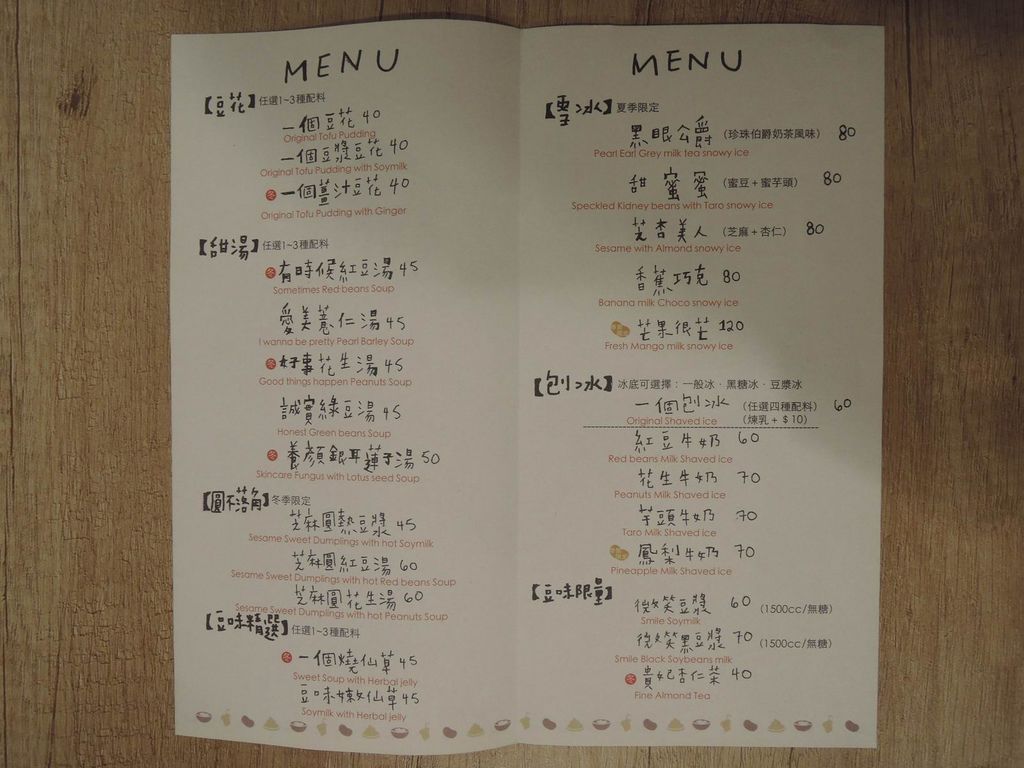 MENU
【豆花】任選1~3種配料
一個豆花 40
Original Tofu Pudding
一個豆漿豆花 40
Original Tofu Pudding with Soymilk
冬 一個薑汁豆花 40
Original Tofu Pudding with Ginger
【甜湯】任選1~3種配料
冬 有時候紅豆湯 45
Sometimes Red beans Soup
愛美薏仁湯 45
I wanna be pretty Pearl Barley Soup
冬 好事花生湯 45
Good things happen Peanuts Soup
誠實綠豆湯 45
Honest Green beans Soup
冬 養顏銀耳蓮子湯 50
Skincare Fungus with Lotus seed Soup
【圓不落角】冬季限定
芝麻圓熱豆漿 45
Sesame Sweet Dumplings with hot Soymilk
芝麻圓紅豆湯 60
Sesame Sweet Dumplings with hot Red beans Soup
芝麻圓花生湯 60
Sesame Sweet Dumplings with hot Peanuts Soup
【豆味精選】任選1~3種配料
冬 一個燒仙草 45
Sweet Soup with Herbal jelly
豆味嫩仙草 45
Soymilk with Herbal jelly
MENU
【雪冰】夏季限定
黑眼公爵 (珍珠伯爵奶茶風味) 80
Pearl Earl Grey milk tea snowy ice
甜蜜蜜 (蜜豆+蜜芋頭) 80
Speckled Kidney beans with Taro snowy ice
芝杏美人 (芝麻+杏仁) 80
Sesame with Almond snowy ice
香蕉巧克 80
Banana milk Choco snowy ice
芒果很芒 120
Fresh Mango milk snowy ice
【刨冰】冰底可選擇:一般冰·黑糖冰·豆漿冰
一個刨冰 (任選四種配料) 60
Original Shaved ice (煉乳+$10)
紅豆牛奶 60
Red beans Milk Shaved ice
花生牛奶 70
Peanuts Milk Shaved ice
芋頭牛奶 70
Taro Milk Shaved ice
鳳梨牛奶 70
Pineapple Milk Shaved ice
【豆味限量】
微笑豆漿 60 (1500cc/無糖)
Smile Soymilk
微笑黑豆漿 70 (1500cc/無糖)
Smile Black Soybeans milk
冬 貴妃杏仁茶 40
Fine Almond Tea